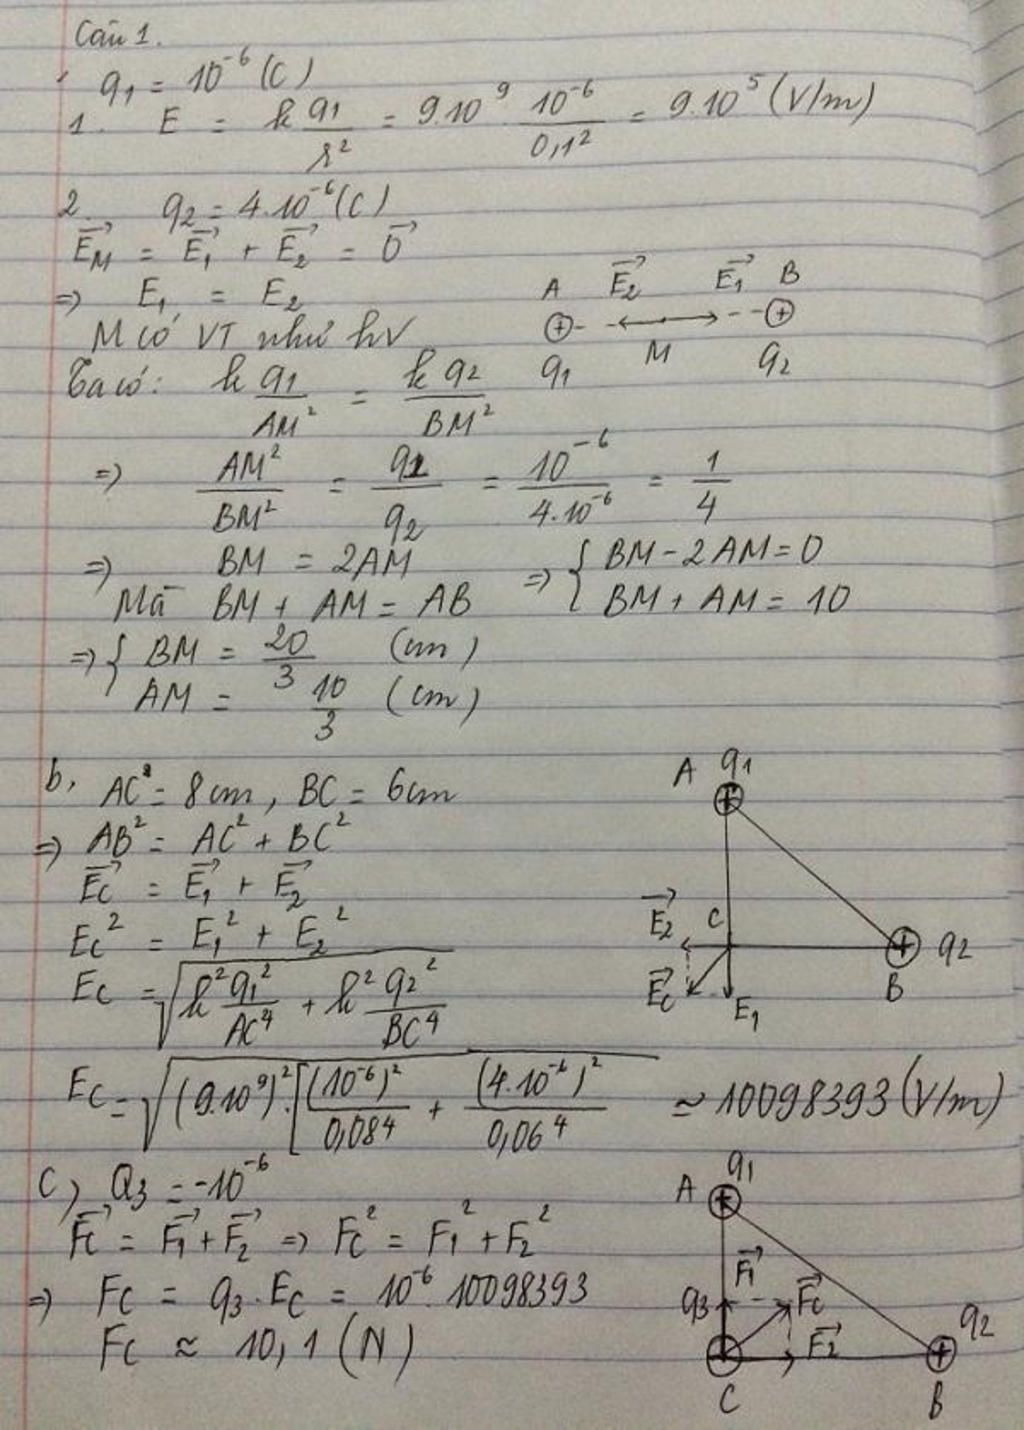 Câu 1.
q₁ = 10⁻⁶ (C)
1. E = k q₁/r² = 9.10⁹ 10⁻⁶/0,1² = 9.10⁵ (V/m)
2. q₂ = 4.10⁻⁶ (C)
E⃗_M = E⃗₁ + E⃗₂ = 0⃗
=> E₁ = E₂
A E⃗₂ E⃗₁ B
M có VT như hV
⊕ ⊕
q₁ M q₂
Ta có: k q₁/AM² = k q₂/BM²
=> AM²/BM² = q₁/q₂ = 10⁻⁶/4.10⁻⁶ = 1/4
=> BM = 2AM => { BM - 2AM = 0
Mà BM + AM = AB BM + AM = 10
=> { BM = 20/3 (cm)
AM = 10/3 (cm)
b, AC = 8cm, BC = 6cm
=> AB² = AC² + BC²
E⃗c = E⃗₁ + E⃗₂
Ec² = E₁² + E₂²
Ec = √(k² q₁²/AC⁴ + k² q₂²/BC⁴)
A q₁
+
E⃗₂ C + q₂
E⃗c E₁ B
Ec = √((9.10⁹)².[(10⁻⁶)²/0,08⁴ + (4.10⁻⁶)²/0,06⁴ ≈ 10098393 (V/m)
c) Q₃ = -10⁻⁶
F⃗c = F⃗₁ + F⃗₂ => Fc² = F₁² + F₂²
=> Fc = q₃.Ec = 10⁻⁶.10098393
Fc ≈ 10,1 (N)
A q₁
F⃗₁
q₃ F⃗c
F⃗₂ + q₂
C B